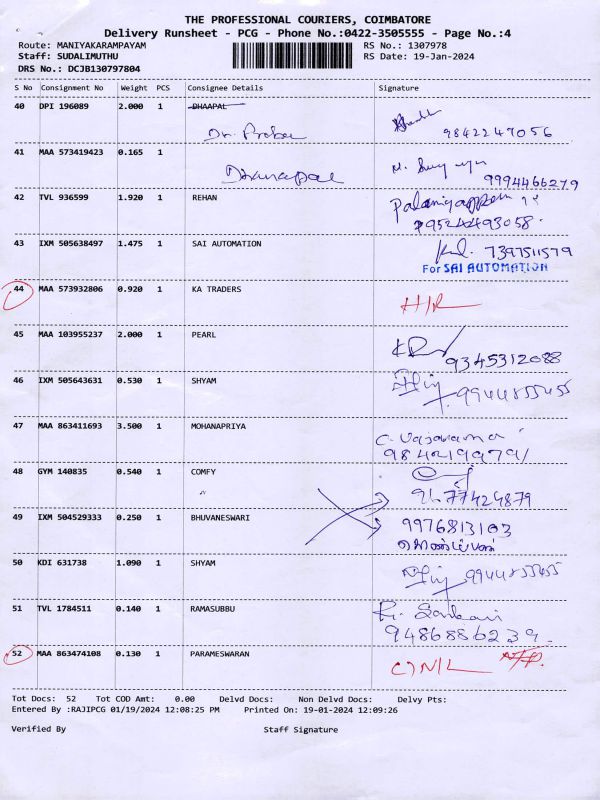 THE PROFESSIONAL COURIERS, COIMBATORE
Delivery Runsheet - PCG - Phone No.:0422-3505555 - Page No.:4
Route: MANIYAKARAMPAYAM RS No.: 1307978
Staff: SUDALIMUTHU RS Date: 19-Jan-2024
DRS No.: DCJB130797804
S No Consignment No Weight PCS Consignee Details Signature
40 DPI 196089 2.000 1 DHAAPAL
9842247056
41 MAA 573419423 0.165 1
Dhanapal 9994466279
42 TVL 936599 1.920 1 REHAN Palaniyappan
43 IXM 505638497 1.475 1 SAI AUTOMATION 7397511579
For SAI AUTOMATION
44 MAA 573932806 0.920 1 KA TRADERS
H/R
45 MAA 103955237 2.000 1 PEARL
9345312088
46 IXM 505643631 0.530 1 SHYAM 9944855455
47 MAA 863411693 3.500 1 MOHANAPRIYA
9842199791
48 GYM 140835 0.540 1 COMFY
9677424879
49 IXM 504529333 0.250 1 BHUVANESWARI 9976813103
50 KDI 631738 1.090 1 SHYAM 9944855455
51 TVL 1784511 0.140 1 RAMASUBBU
9486886239
52 MAA 863474108 0.130 1 PARAMESWARAN
C)N/L
Tot Docs: 52 Tot COD Amt: 0.00 Delvd Docs: Non Delvd Docs: Delvy Pts:
Entered By :RAJIPCG 01/19/2024 12:08:25 PM Printed On: 19-01-2024 12:09:26
Verified By Staff Signature